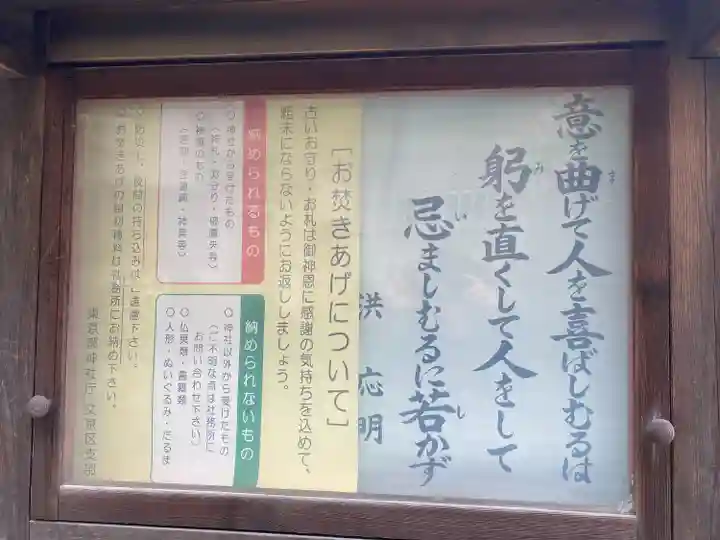 意を曲げて人を喜ばしむるは
躬を直くして人をして
忌ましむるに若かず
洪応明
［お焚きあげについて］
古いお守り・お札は御神恩に感謝の気持ちを込めて、
粗末にならないようにお返ししましょう。
納められるもの
○神社から受けたもの
（お札・お守り・破魔矢等）
○神棚のもの
納められないもの
○神社以外から受けたもの
（ご不明な点は社務所に
お問い合わせ下さい）
○仏具類・書籍類
○人形・ぬいぐるみ・だるま
の持ち込みはご遠慮下さい。
○お焚きあげの
は社務所にお納め下さい。
東京都神社庁 文京区支部